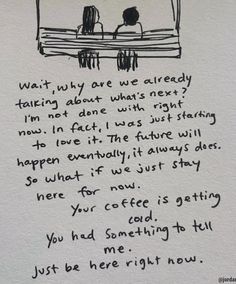 Wait, why are we already
talking about what's next?
I'm not done with right
now. In fact, I was just starting
to love it. The future will
happen eventually, it always does.
So what if we just stay
here for now.
Your coffee is getting
cold.
You had something to tell
me.
Just be here right now.